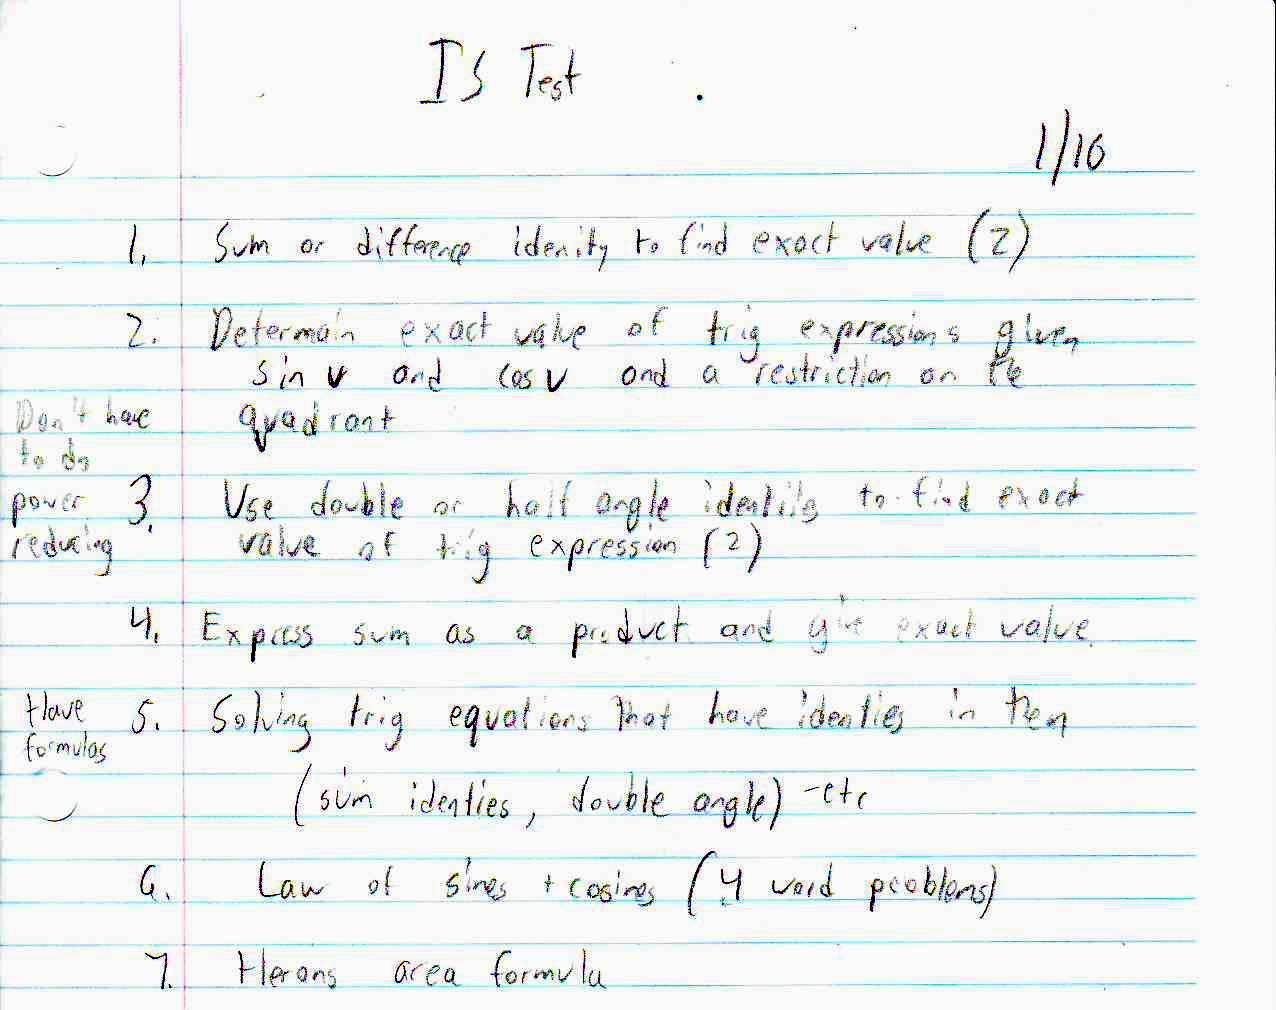 IS Test
1/16
1. Sum or difference idenity to find exact value (2)
2. Determain exact value of trig expressions given
sin v and cos v and a restriction on the
quadrant
Don't have
to do
power
reducing
3. Use double or half angle identity to find exact
value of trig expression (2)
4. Express sum as a product and give exact value
Have
formulas
5. Solving trig equations that have identies in them
(sum identies, double angle) -etc
6. Law of sines + cosines (4 word problems)
7. Herons area formula